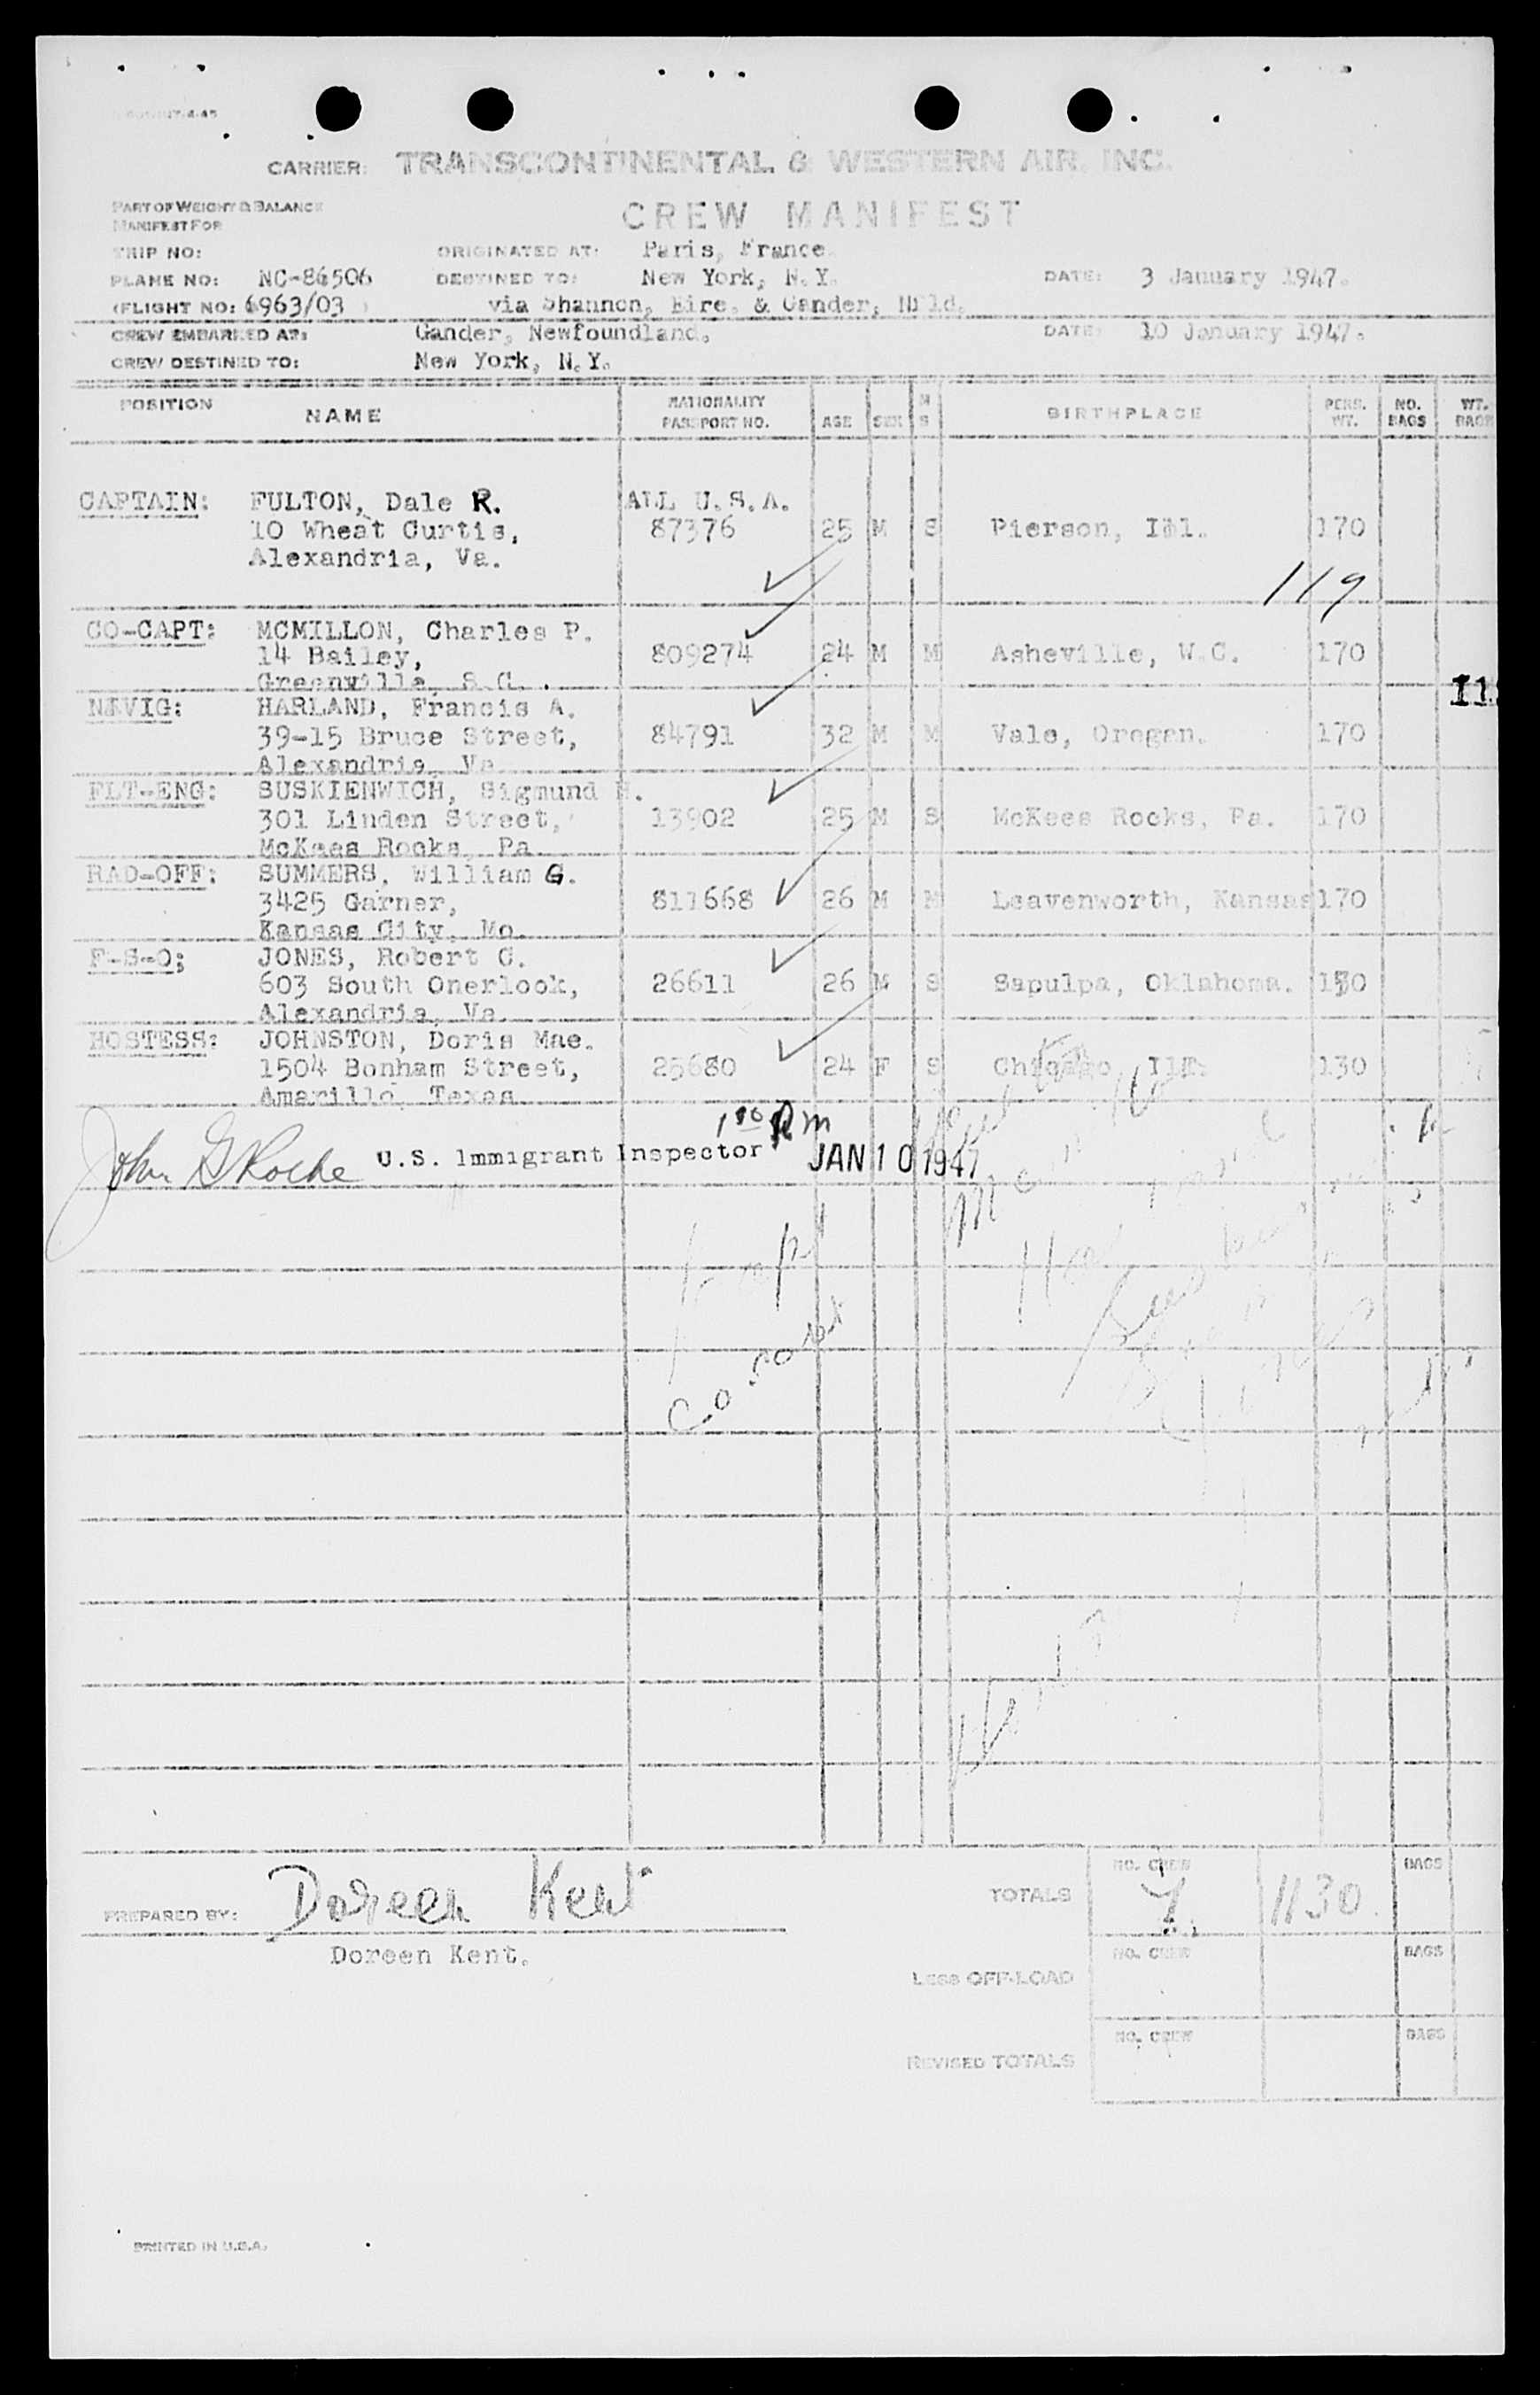 CARRIER: TRANSCONTINENTAL & WESTERN AIR, INC.
PART OF WEIGHT & BALANCE
MANIFEST FOR
CREW MANIFEST
TRIP NO: ORIGINATED AT: Paris, France.
PLANE NO: NC-86506 DESTINED TO: New York, N.Y. DATE: 3 January 1947.
(FLIGHT NO: 6963/03 ) via Shannon, Eire. & Gander, Nfld.
CREW EMBARKED AT: Gander, Newfoundland. DATE: 10 January 1947.
CREW DESTINED TO: New York, N.Y.
POSITION NAME NATIONALITY PASSPORT NO. AGE SEX M S BIRTHPLACE PERS. WT. NO. BAGS WT. BAGS
CAPTAIN: FULTON, Dale R. ALL U.S.A.
10 Wheat Curtis, 87376 25 M S Pierson, Ill. 170
Alexandria, Va.
119
CO-CAPT: MCMILLON, Charles P.
14 Bailey, 809274 24 M M Asheville, W.C. 170
Greenville, S.C. .
Il
NAVIG: HARLAND, Francis A.
39-15 Bruce Street, 84791 32 M M Vale, Oregan. 170
Alexandria, Va
FLT-ENG: SUSKIENWICH, Sigmund
301 Linden Street, 13902 25 M S McKees Rocks, Pa. 170
McKees Rocks, Pa
RAD-OFF: SUMMERS, William G.
3425 Garner, 811668 26 M M Leavenworth, Kansas 170
Kansas City, Mo.
F-S-O: JONES, Robert C.
603 South Onerlook, 26611 26 M S Sapulpa, Oklahoma.
Alexandria, Va.
HOSTESS: JOHNSTON, Doris Mae.
1504 Bonham Street, 25680 24 F S Chicago, Ill. 130
Amarillo, Texas
John G Roche U.S. Immigrant Inspector JAN 10 1947
PREPARED BY: Doreen Kent
Doreen Kent.
TOTALS NO. CREW 7 1130. BAGS
LESS OFF-LOAD NO. CREW BAGS
REVISED TOTALS NO. CREW BAGS
PRINTED IN U.S.A.